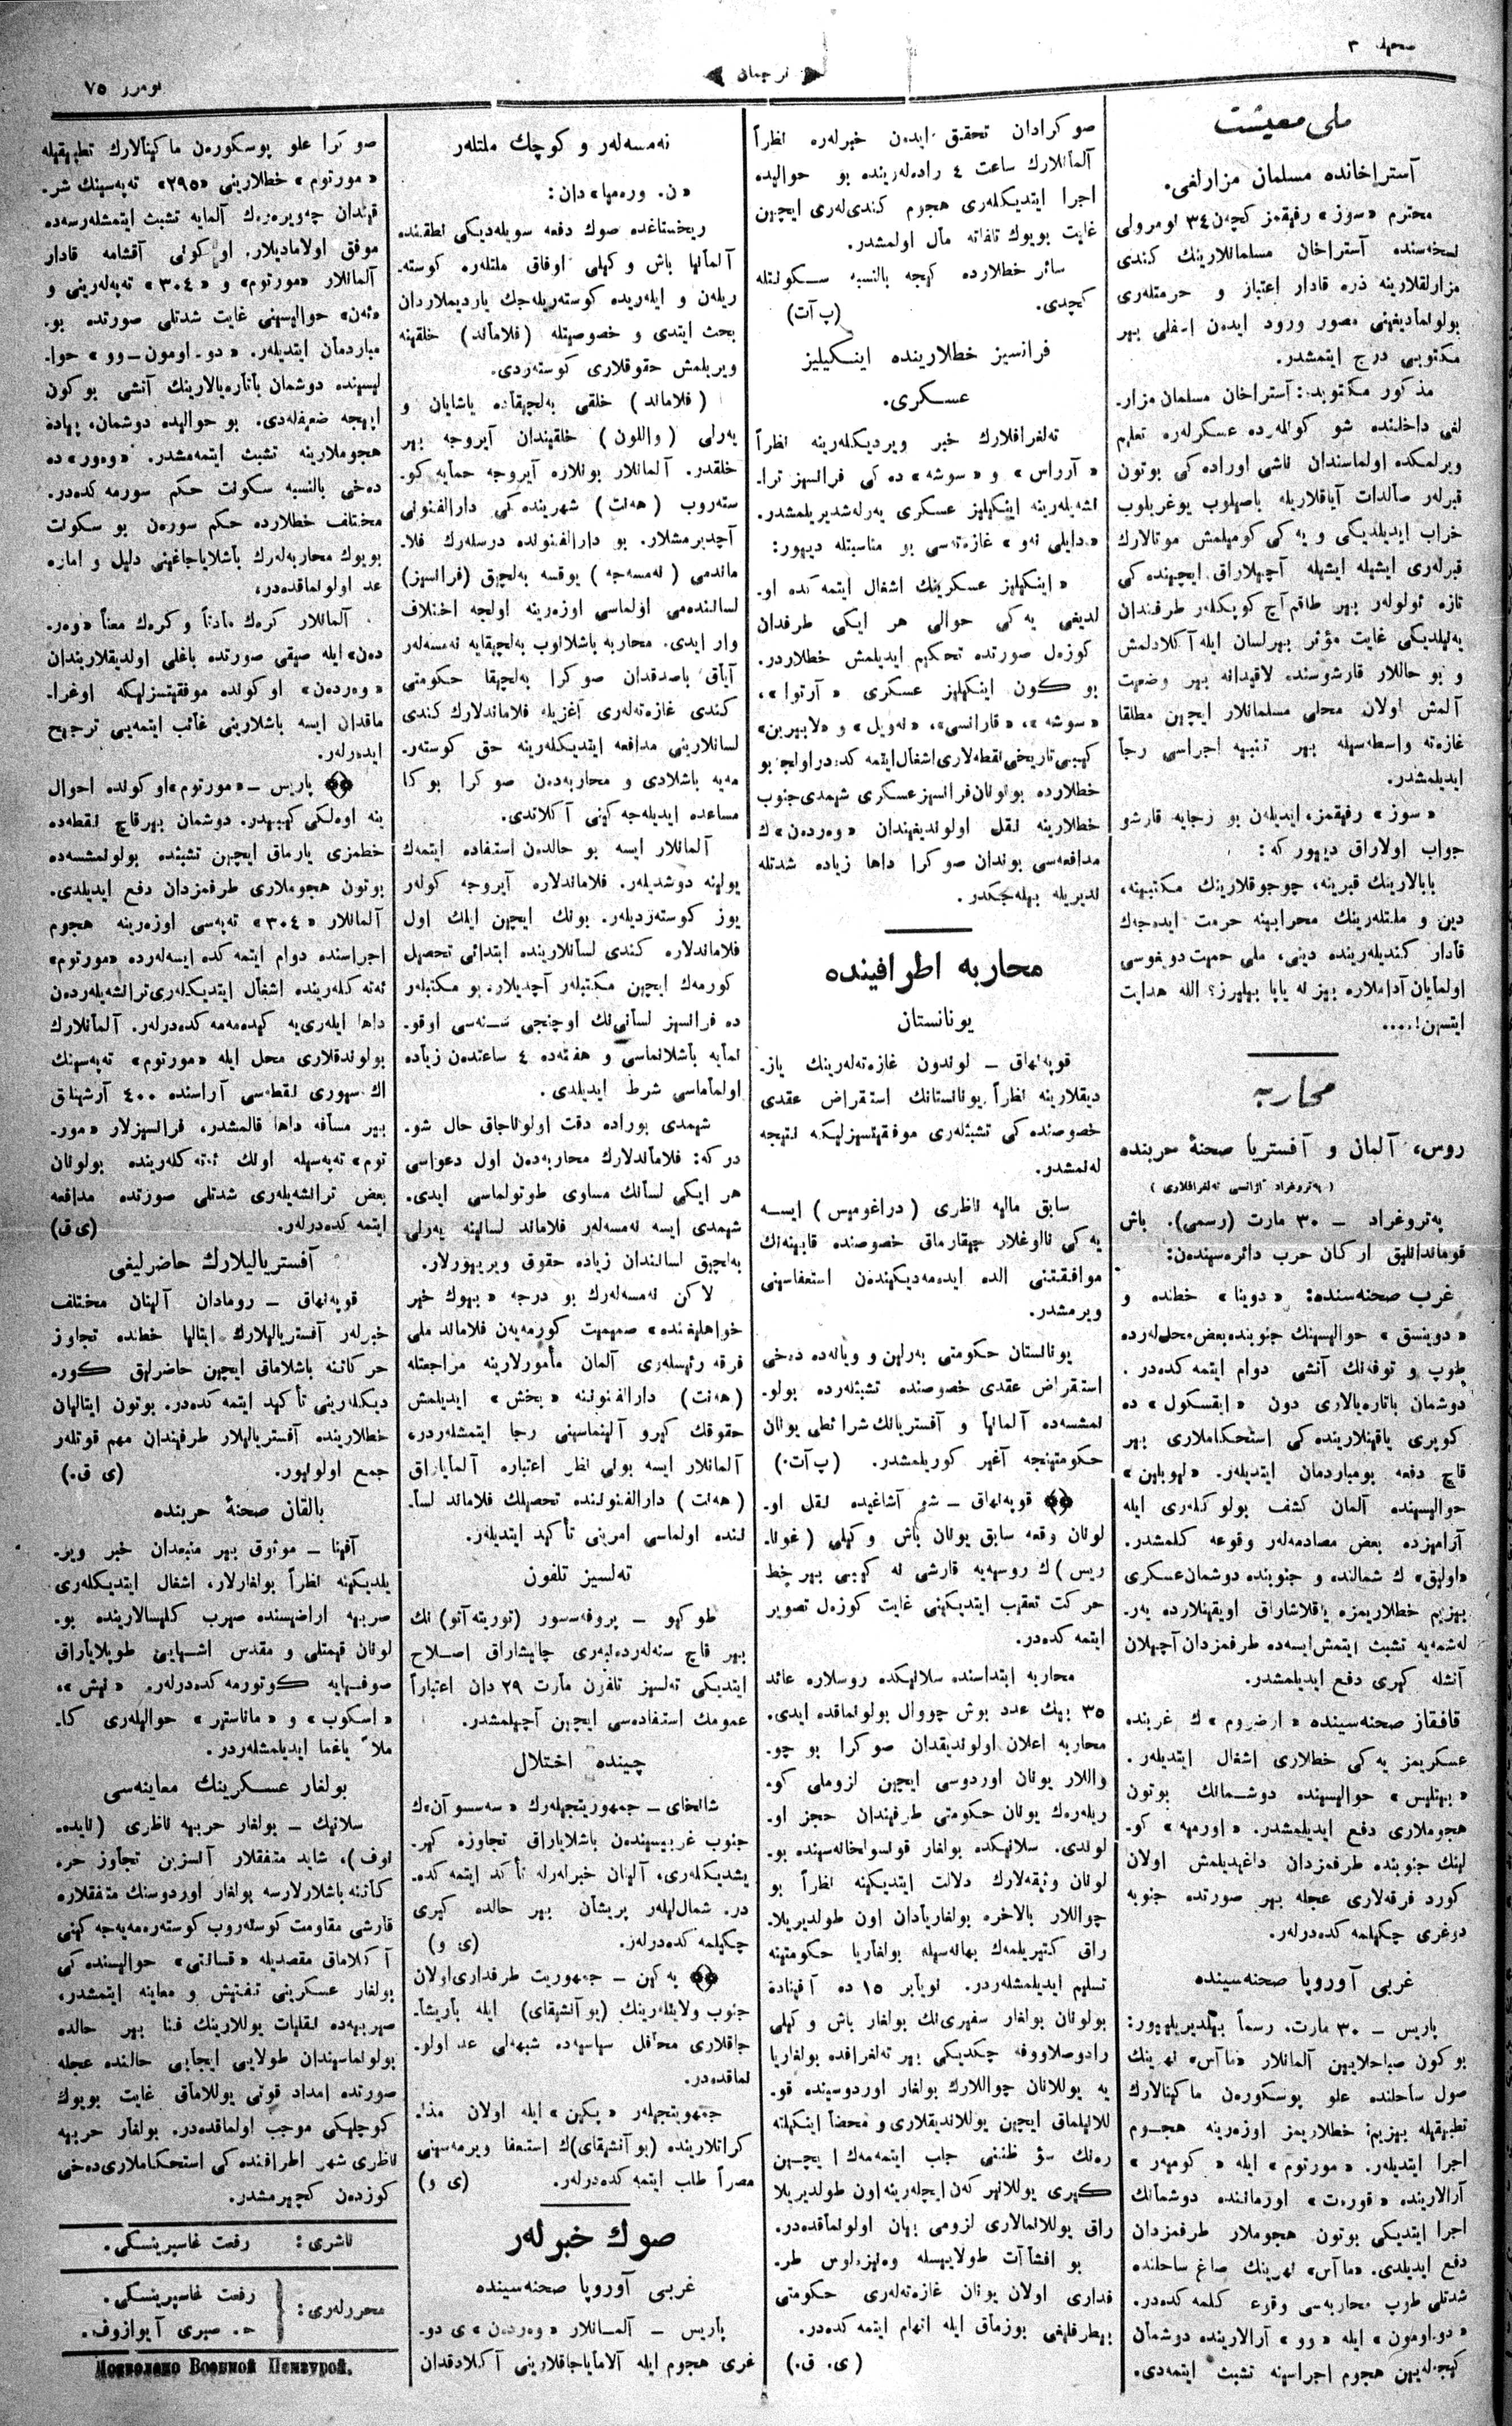 صحیفه ۳
ترجمان
نومرو ۷۵
ملی معیشت
آستراخانده مسلمان مزارلغی.
محترم «سوز» رفیقمز کچەن ۳٤ نومرولی
نسخەسنده آستراخان مسلمانلارینك کندی
مزارلقلارینه ذره قادار اعتبار و حرمتلەری
بولولمادیغینی مصور ورود ایدەن اۀلی بیر
مکتوبی درج ایتمشدر.
مذکور مکتوبده: آستراخان مسلمان مزار-
لغی داخلنده شو کونلەرده عسکرلەره تعلیم
ویرلمکده اولماسندان ناشی اوراده کی بوتون
قبرلەر صالدات آیاقلاریله باصیلوب یوغریلوب
خراب ایدیلدیکی و یەکی کومیلمش موتالارك
قبرلەری ایشیله ایشیله آچیلاراق ایچینده کی
تازه ئولولەر بیر طاقم آچ کوپکلەر طرفندان
یەنیلدیکی غایت مؤثر بیر لسان ایله آکلادلمش
و بو حاللار قارشوسنده لاقیدانه بیر وضعیت
آلمش اولان محلی مسلمانلار ایچین مطلقا
غازەته واسطەسیله بیر تنبیه اجراسی رجا
ایدیلمشدر.
«سوز» رفیقمز، ایدیلەن بو رجایه قارشو
جواب اولاراق دییور که:
بابالارینك قبرینه، چوجوقلارینك مکتبینه،
دین و ملتلەرینك محرابینه حرمت ایدەجەك
قادار کندیلەرینده دینی، ملی حمیت دویغوسی
اولمایان آداملاره بیز نه یاپا بیلیرز؟ الله هدایت
ایتسین!....
محاربه
روس، آلمان و آفستریا صحنۀ حربنده
(پەتروغراد آژانسی تەلغرافلاری)
پەتروغراد – ۳۰ مارت (رسمی). باش
قوماندانلیق ارکان حرب دائرەسیندەن:
غرب صحنەسنده: «دوینا» خطنده و
«دوینسق» حوالیسینك جنوبنده بعض محللەرده
طوپ و توفەنك آتشی دوام ایتمەکدەدر.
دوشمان باتارەیالاری دون «ایقسکول» ده
کوپری یاقینلارینده کی استحکاملاری بیر
قاچ دفعه بومباردمان ایتدیلەر. «لیوبلین»
حوالیسینده آلمان کشف بولوکلەری ایله
آرامیزده بعض مصادمەلەر وقوعه کلمشدر.
«اولیق» ك شمالنده و جنوبنده دوشمان عسکری
بیزیم خطلاریمزه یاقلاشاراق اویقینلارده یەر-
لەشمەیه تشبث ایتمش ایسەده طرفمزدان آچیلان
آتشله کیری دفع ایدیلمشدر.
قافقاز صحنەسینده «ارضروم» ك غربنده
عسکریمز یەکی خطلاری اشغال ایتدیلەر.
«بیتلیس» حوالیسینده دوشمانك بوتون
هجوملاری دفع ایدیلمشدر. «اورمیه» کو-
لینك جنوبنده طرفمزدان داغیدیلمش اولان
کورد فرقەلاری عجله بیر صورتده جنوبه
دوغری چکیلمەکدەدرلەر.
غربی آوروپا صحنەسینده
پاریس – ۳۰ مارت. رسماً بیلدیریلیور:
بو کون صباحلایین آلمانلار «ماآس» نهرینك
صول ساحلنده علو پوسکورەن ماکینالارك
تطبیقیله بیزیم خطلاریمز اوزەرینه هجوم
اجرا ایتدیلەر. «مورتوم» ایله «کومیەر»
آرالارینده «قورەت» اورماننده دوشمانك
اجرا ایتدیکی بوتون هجوملار طرفمزدان
دفع ایدیلدی. «ماآس» نهرینك صاغ ساحلنده
شدتلی طوپ محاربەسی وقوع کلمەکدەدر.
«دواومون» ایله «وو» آرالارینده دوشمان
کیجەلەیین هجوم اجراسینه تشبث ایتمەدی.
صوکرادان تحقق ایدەن خبرلەره نظراً
آلمانلارك ساعت ٤ رادەلەرینده بو حوالیده
اجرا ایتدیکلەری هجوم کندیلەری ایچین
غایت بویوك تلفاته مآل اولمشدر.
سائر خطلارده کیجه بالنسبه سکونتله
کچدی. (پ آت)
فرانسیز خطلارینده اینکیلیز
عسکری.
تەلغرافلارك خبر ویردیکلەرینه نظراً
«آرراس» و «سوشه» ده کی فرانسیز ترا-
نشەیلەرینه اینکیلیز عسکری یەرلەشدیریلمشدر.
«دایلی نەو» غازەتەسی بو مناسبتله دییور:
«اینکیلیز عسکرینك اشغال ایتمەکده او-
لدیغی یەکی حوالی هر ایکی طرفدان
کوزەل صورتده تحکیم ایدیلمش خطلاردر.
بو کون اینکیلیز عسکری «آرتوا»،
«سوشه»، «قارانسی»، «نەویل» و «لابیرین»
کیبی تاریخی نقطەلاری اشغال ایتمەکدەدر اولجه بو
خطلارده بولونان فرانسیز عسکری شیمدی جنوب
خطلارینه نقل اولوندیغیندان «وەردەن» ك
مدافعەسی بوندان صوکرا داها زیاده شدتله
ندیریله بیلەجکدر.
محاربه اطرافینده
یونانستان
قوپەنهاق – لوندون غازەتەلەرینك یاز-
دیقلارینه نظراً یونانستانك استقراض عقدی
خصوصنده کی تشبثلەری موفقیتسیزلیکله نتیجه
لەنمشدر.
سابق مالیه ناظری (دراغومیس) ایسه
یەکی نالوغلار چیقارماق خصوصنده قابینەنك
موافقتنی الده ایدەمەدیکیندەن استعفاسینی
ویرمشدر.
یونانستان حکومتی بەرلین و ویانەده دخی
استقراض عقدی خصوصنده تشبثلەرده بولو-
نمشسەده آلمانیا و آفستریانك شرائطی یونان
حکومتینجه آغیر کوریلمشدر. (پ آت.)
قوپەنهاق – شو آشاغیده نقل او-
لونان وقعه سابق یونان باش وکیلی (غونا-
ریس) ك روسیەیه قارشی نه کیبی بیر خط
حرکت تعقیب ایتدیکینی غایت کوزەل تصویر
ایتمەکدەدر.
محاربه ابتداسنده سلانیکده روسلاره عائد
۳۵ بیك عدد بوش چووال بولونماقده ایدی.
محاربه اعلان اولوندیقدان صوکرا بو چو-
واللار یونان اوردوسی ایچین لزوملی کو-
ریلەرەك یونان حکومتی طرفیندان حجز او-
لوندی. سلانیکده بولغار قونسولخانەسینده بو-
لونان وثیقەلارك دلالت ایتدیکینه نظراً بو
چواللار بالاخره بولغاریادان اون طولدیریلا-
راق کتیریلمەك بهانەسیله بولغاریا حکومتینه
تسلیم ایدیلمشلەردر. نویابر ۱۵ ده آفیناده
بولونان بولغار سفیرینك بولغار باش وکیلی
رادوصلاووفه چکدیکی بیر تەلغرافده بولغاریا
یه یوللانان چواللارك بولغار اوردوسینده قو-
للانیلماق ایچین یوللاندیقلاری و محضاً اینکیلتە
رەنك سؤ ظننی جلب ایتمەمەك ایچین
کیری یوللانیر کەن ایچلەرینه اون طولدیریلا
راق یوللانمالاری لزومی بیان اولونماقدەدر.
بو افشاآت طولاییسله وەنیزەلوس طر-
فداری اولان یونان غازەتەلەری حکومتی
بیطرفلیغی بوزماق ایله اتهام ایتمەکدەدر.
(ی. ق.)
نەمسەلەر و کوچك ملتلەر
«ن. ورەمیا» دان:
ریخستاغده صوك دفعه سویلەدیکی نطقنده
آلمانیا باش وکیلی اوفاق ملتلەره کوستە-
ریلەن و ایلەریده کوستەریلەجك یاردیملاردان
بحث ایتدی و خصوصیتله (فلاماند) خلقینه
ویریلمش حقوقلاری کوستەردی.
(فلاماند) خلقی بەلچیقاده یاشایان و
یەرلی (واللون) خلقیندان آیروجه بیر
خلقدر. آلمانلار بونلاره آیروجه حمایه کو-
ستەروب (هەنت) شهرینده کی دارالفنونی
آچدیرمشلار. بو دارالفنونده درسلەرك فلا-
ماندمی (نەمسەجه) یوقسه بەلچیق (فرانسیز)
لسانندەمی اولماسی اوزەرینه اولجه اختلاف
وار ایدی. محاربه باشلانوب بەلچیقایه نەمسەلەر
آیاق باصدقدان صوکرا بەلچیقا حکومتی
کندی غازەتەلەری آغزیله فلاماندلارك کندی
لسانلارینی مدافعه ایتدیکلەرینه حق کوستەر-
مەیه باشلادی و محاربەدەن صوکرا بوکا
مساعده ایدیلەجەکینی آکلاتدی.
آلمانلار ایسه بو حالدەن استفاده ایتمەك
یولینه دوشدیلەر. فلاماندلاره آیروجه کولەر
یوز کوستەردیلەر. بونك ایچین ایلك اول
فلاماندلاره کندی لسانلارینده ابتدائی تحصیل
کورمەك ایچین مکتبلەر آچدیلار. بو مکتبلەر
ده فرانسیز لسانینك اوچنجی سنەسی اوقو-
نمایه باشلانماسی و هفتەده ٤ ساعتدەن زیاده
اولماماسی شرط ایدیلدی.
شیمدی بوراده دقت اولوناجاق حال شو-
در که: فلاماندلارك محاربەدەن اول دعواسی
هر ایکی لسانك مساوی طوتولماسی ایدی.
شیمدی ایسه نەمسەلەر فلاماند لسانینه یەرلی
بەلچیق لسانندان زیاده حقوق ویرییورلار.
لاکن نەمسەلەرك بو درجه «بیوك خیر
خواهلیغنده» صمیمیت کورمەیەن فلاماند ملی
فرقه رئیسلەری آلمان مأمورلارینه مراجعتله
(هەنت) دارالفنوننه «بخش» ایدیلمش
حقوقك کیرو آلینماسینی رجا ایتمشلەردر،
آلمانلار ایسه بونی نظر اعتباره آلمایاراق
(هەنت) دارالفنوننده تحصیلك فلاماند لسا-
ننده اولماسی امرینی تأکید ایتدیلەر.
تەلسیز تلفون
طوکیو – پروفەسسور (توریتەآتو) نك
بیر قاچ سنەلەردەنبەری چالیشاراق اصلاح
ایتدیکی تەلسیز تلفون مارت ۲۹ دان اعتباراً
عمومك استفادەسی ایچین آچیلمشدر.
چینده اختلال
شانخای – جمهوریتجیلەرك «سەسسوآن» ك
جنوب غربیسیندەن باشلایاراق تجاوزه کیر-
یشدیکلەری، آلینان خبرلەرله تأکد ایتمەکدە-
در. شماللیلەر پریشان بیر حالده کیری
چکیلمەکدەدرلەر. (ی و)
پەکین – جمهوریت طرفداری اولان
جنوب ولایتلەرینك (یوآنشیقای) ایله باریشا-
جاقلاری محافل سیاسیەده شبهەلی عد اولو-
نماقدەدر.
جمهوریتجیلەر «پکین» ایله اولان مذا-
کراتلارینده (یوآنشیقای) ك استعفا ویرمەسینی
مصراً طلب ایتمەکدەدرلەر. (ی و)
صوك خبرلەر
غربی آوروپا صحنەسینده
پاریس – آلمانلار «وەردەن» ی دو-
غری هجوم ایله آلامایاجاقلارینی آکلادقدان
صوکرا علو پوسکورەن ماکینالارك تطبیقیله
«مورتوم» خطلارینی «۲۹۵» تەپەسینك شر-
قیندان چەویرەرەك آلمایه تشبث ایتمشلەرسەده
موفق اولامادیلار. او کونی آقشامه قادار
آلمانلار «مورتوم» و «۳۰٤» تەپەلەرینی و
«ئەن» حوالیسینی غایت شدتلی صورتده بو-
مباردمان ایتدیلەر. «دو-اومون – وو» حوا-
لیسینده دوشمان باتارەیالارینك آتشی بو کون
ایپیجه ضعیفلەدی. بو حوالیده دوشمان، پیاده
هجوملارینه تشبث ایتمەمشدر. «وەور» ده
دەخی بالنسبه سکونت حکم سورمەکدەدر.
مختلف خطلارده حکم سورەن بو سکونت
بویوك محاربەلەرك باشلایاجاغینی دلیل و اماره
عد اولونماقدەدر،
آلمانلار کرەك مادتاً و کرەك معناً «وەر-
دەن» ایله صیقی صورتده باغلی اولدیقلاریندان
«وەردەن» اوکونده موفقیتسزلیکه اوغرا-
ماقدان ایسه باشلارینی غائب ایتمەیی ترجیح
ایدەرلەر.
پاریس – «مورتوم» اوکونده احوال
ینه اوەلکی کیبیدر. دوشمان بیرقاچ نقطەده
خطمزی یارماق ایچین تشبثده بولونمشسەده
بوتون هجوملاری طرفمزدان دفع ایدیلدی.
آلمانلار «۳۰٤» تەپەسی اوزەرینه هجوم
اجراسنده دوام ایتمەکده ایسەلەرده «مورتوم»
ئەتەکلەرینده اشغال ایتدیکلەری ترانشەیلەردەن
داها ایلەری یه کیدەمەمەکدەدرلەر. آلمانلارك
بولوندقلاری محل ایله «مورتوم» تەپەسینك
اك سیوری نقطەسی آراسنده ٤۰۰ آرشینلق
بیر مسافه داها قالمشدر، فرانسیزلار «مور-
توم» تەپەسیله اونك ئەتەکلەرینده بولونان
بعض ترانشەیلەری شدتلی صورتده مدافعه
ایتمەکدەدرلەر. (ی ق)
آفستریالیلارك حاضرلیغی
قوپەنهاق – رومادان آلینان مختلف
خبرلەر آفستریالیلارك ایتالیا خطنده تجاوز
حرکاتنه باشلاماق ایچین حاضرلیق کور-
دیکلەرینی تأکید ایتمەکدەدر. بوتون ایتالیان
خطلارینده آفستریالیلار طرفیندان مهم قوتلەر
جمع اولونیور. (ی ق.)
بالقان صحنۀ حربنده
آفینا – موثوق بیر منبعدان خبر ویر-
یلدیکینه نظراً بولغارلار، اشغال ایتدیکلەری
صربیه اراضیسنده صیرب کلیسالارینده بو-
لونان قیمتلی و مقدس اشیایی طوپلایاراق
صوفیایه کوتورمەکدەدرلەر. «نیش»،
«اسکوب» و «ماناستیر» حوالیلەری کا-
ملاً یاغما ایدیلمشلەردر.
بولغار عسکرینك معاینەسی
سلانیك – بولغار حربیه ناظری (نایدە-
نوف)، شاید متفقلار آنسزین تجاوز حر-
کاتنه باشلارلارسه بولغار اوردوسنك متفقلاره
قارشی مقاومت کوستەروب کوستەرەمەیەجەکینی
آکلاماق مقصدیله «قسانتی» حوالیسنده کی
بولغار عسکرینی تفتیش و معاینه ایتمشدر،
صیربیەده نقلیات یوللارینك فنا بیر حالده
بولونماسیندان طولایی ایجابی حالنده عجله
صورتده امداد قوتی یوللاماق غایت بویوك
کوچلیکی موجب اولماقدەدر. بولغار حربیه
ناظری شهر اطرافنده کی استحکاملاری دەخی
کوزدەن کچیرمشدر.
ناشری: رفعت غاسپرینسکی.
محررلەری: رفعت غاسپرینسکی.
ح. صبری آیوازوف.
Дозволено Военной Цензурой.